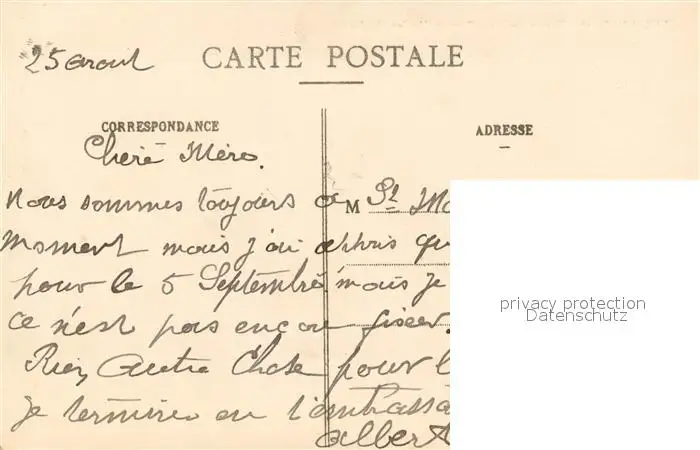 25 avout
CARTE POSTALE
CORRESPONDANCE
ADRESSE
Cheré Mére.
Nous sommes toujours a
M St
moment mais j'ai apris qu
pour le 5 Septembre mais je
ce n'est pas encore fixer.
Rien Autre Chose pour l
je termine en t'embrassa
albert
privacy protection
Datenschutz